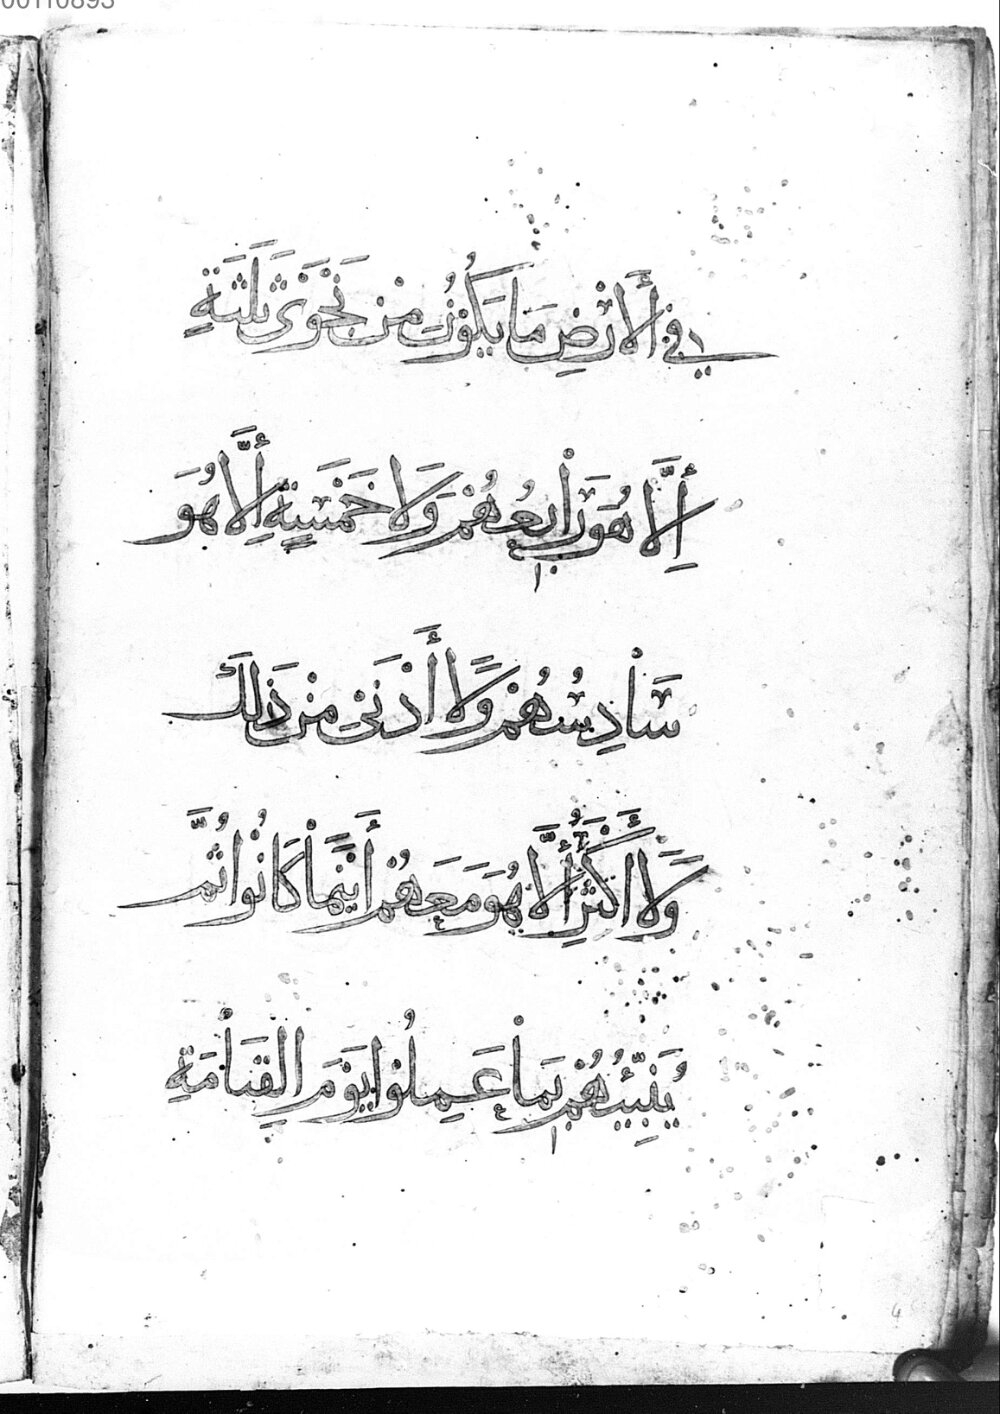 00110893
فِى ٱلْأَرْضِ مَا يَكُونُ مِنْ نَجْوَىٰ ثَلَثَةٍ
إِلَّا هُوَ رَابِعُهُمْ وَلَا خَمْسَةٍ إِلَّا هُوَ
سَادِسُهُمْ وَلَا أَدْنَىٰ مِنْ ذَلِكَ
وَلَا أَكْثَرَ إِلَّا هُوَ مَعَهُمْ أَيْنَمَا كَانُوا ثُمَّ
يُنَبِّئُهُمْ بِمَا عَمِلُوا يَوْمَ الْقِيَامَةِ